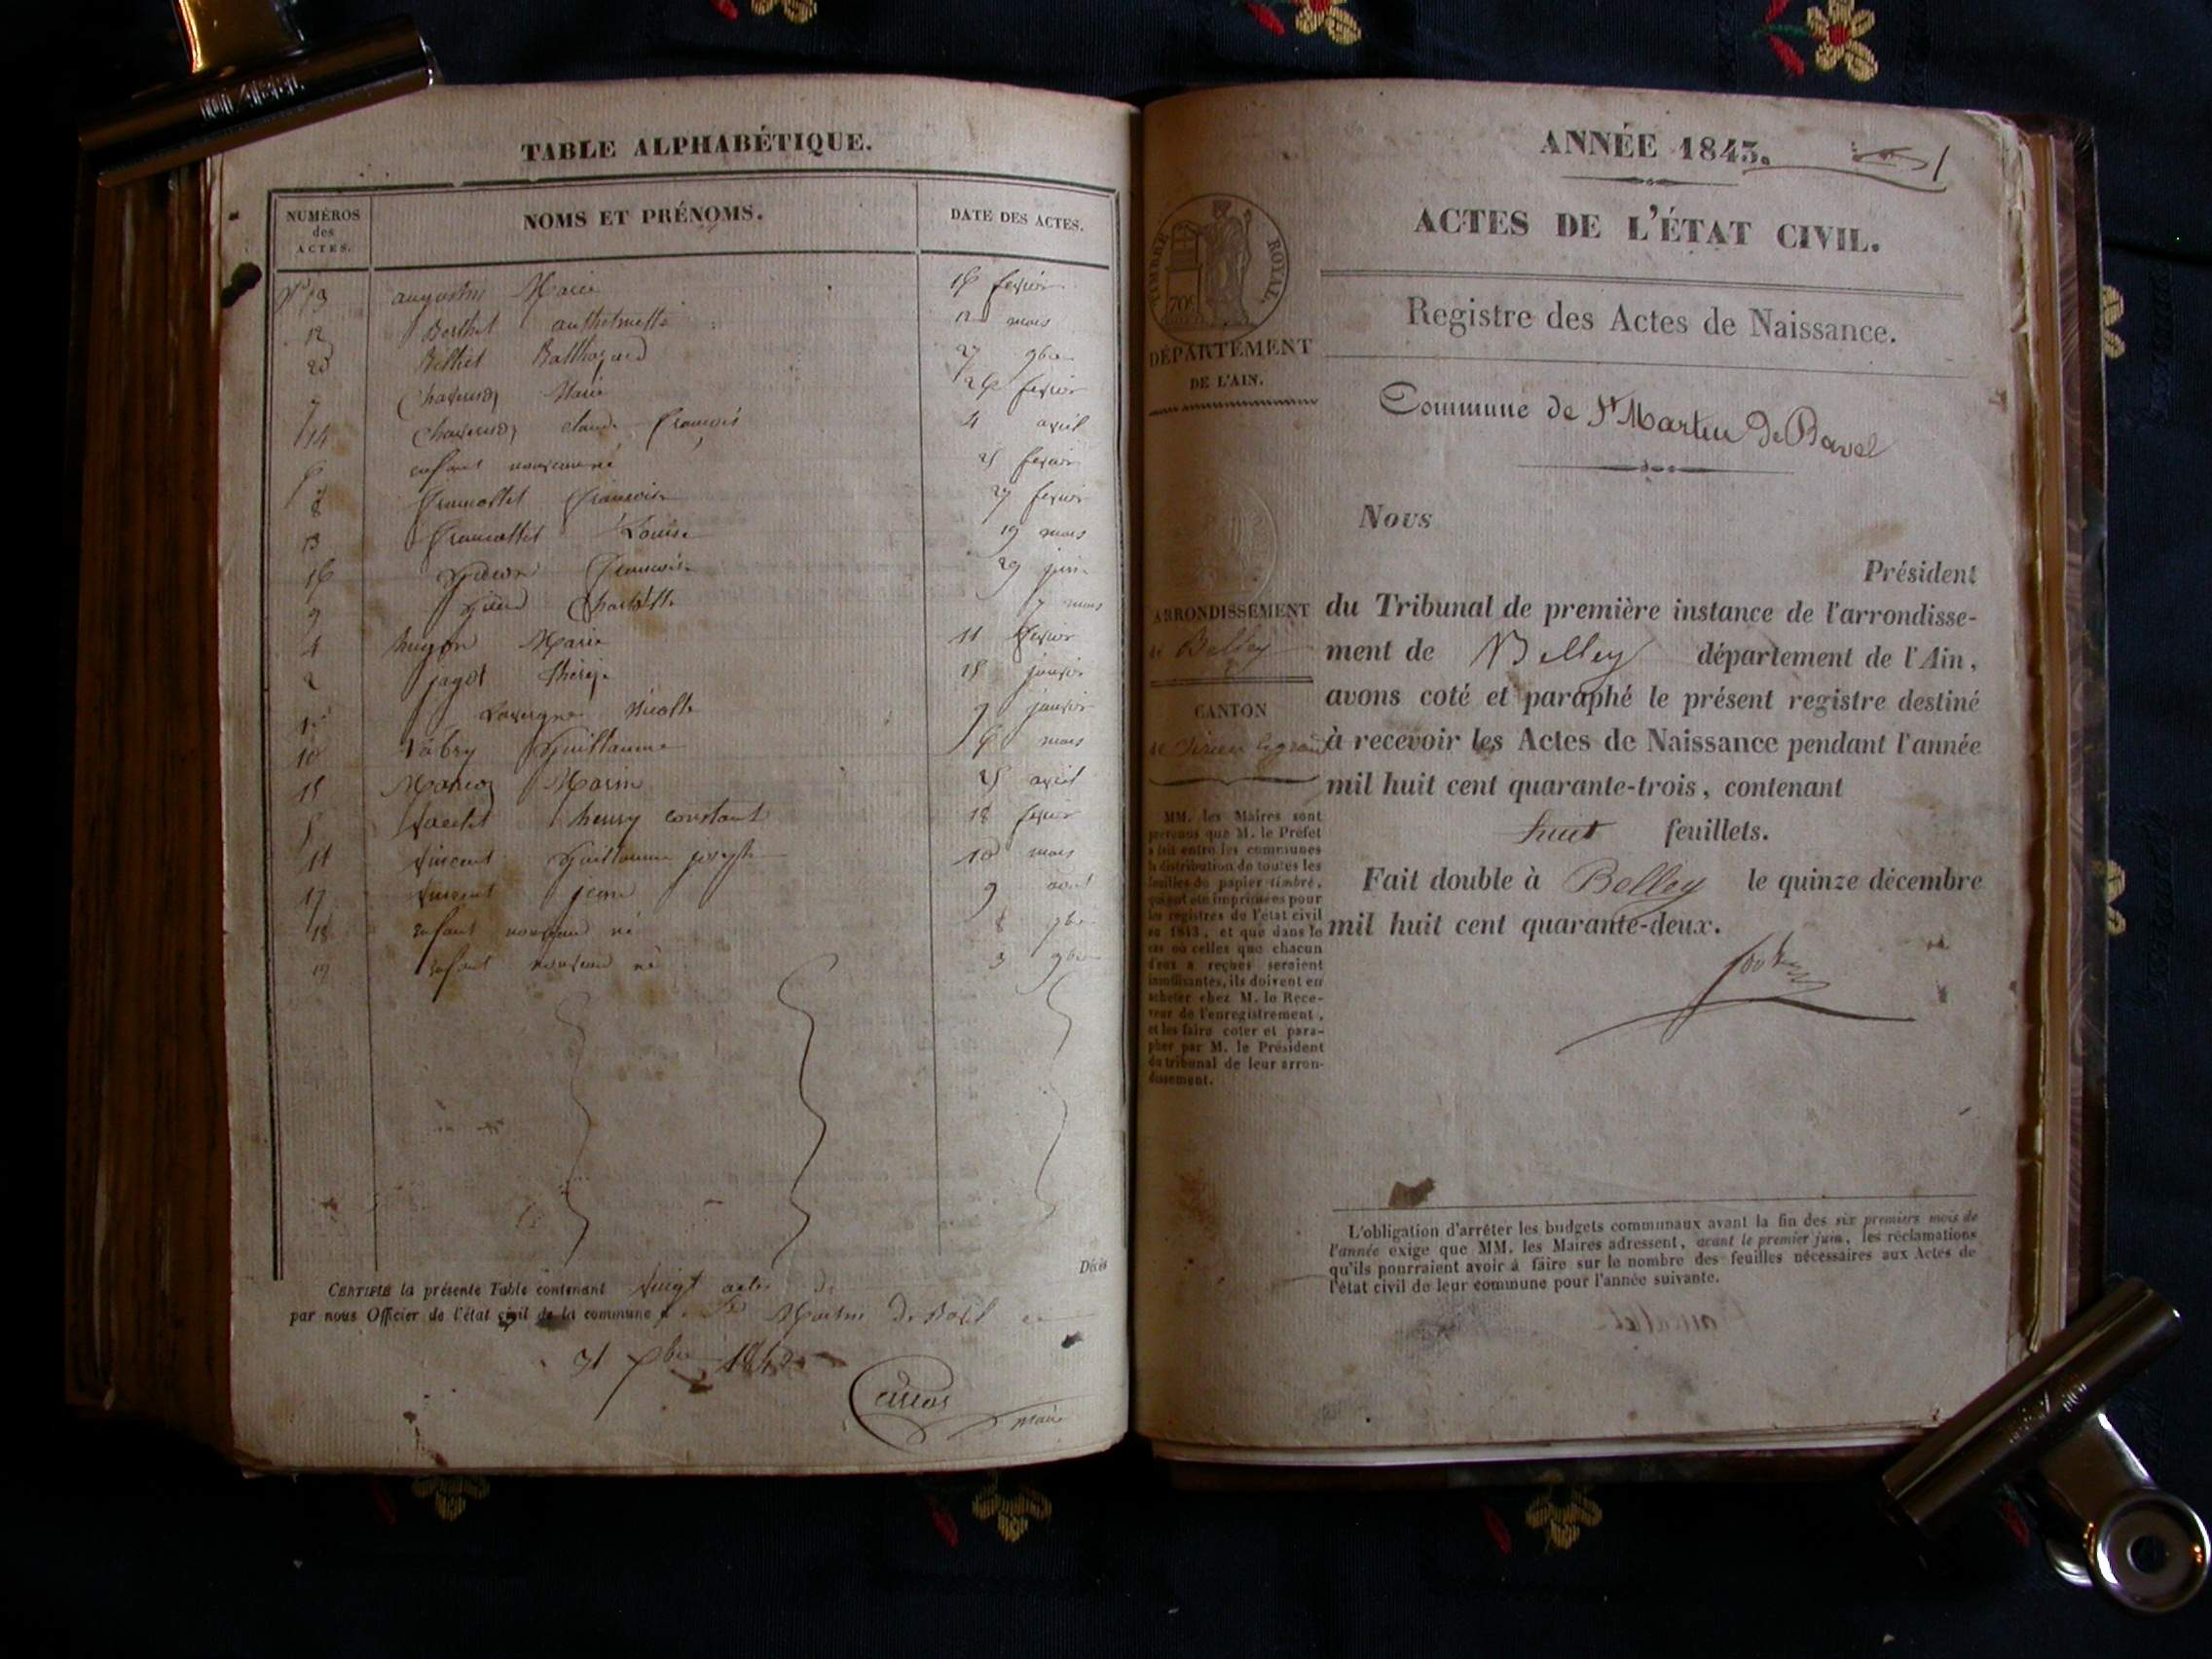 TABLE ALPHABÉTIQUE.
NUMÉROS des ACTES.
NOMS ET PRÉNOMS.
DATE DES ACTES.
3 augustin Marie 16 fevrier
12 Berthet anthelmette 12 mars
20 Berthet Balthazard 27 9bre
7 Marie 26 fevrier
14 claude françois 4 avril
6 enfant nouveau né 25 fevrier
8 Francallet Françoise 27 fevrier
13 Francallet Louise 19 mars
16 Françoise 29 juin
9 Charlotte 7 mars
4 hugon Marie 11 fevrier
2 jagot therèze 18 janvier
1er Lavergne Nicolle 9 janvier
10 Guillaume 9 mars
15 Marin 25 avril
5 henry constant 18 fevrier
11 Vincent Guillaume joseph 10 mars
17 Vincent jean 9 aout
18 enfant nouveau né 8 7bre
19 enfant nouveau né 3 9bre
Décès
CERTIFIÉ la présente Table contenant vingt actes
par nous Officier de l'état civil de la commune de St Martin De Bavel
31 Xbre 1842
maire
ANNÉE 1843. 1
ACTES DE L'ÉTAT CIVIL.
Registre des Actes de Naissance.
TIMBRE ROYAL.
70c
DÉPARTEMENT
DE L'AIN.
Commune de St Martin De Bavel
Nous
Président
ARRONDISSEMENT
de Belley
CANTON
de Virieu le grand
du Tribunal de première instance de l'arrondisse-
ment de Belley département de l'Ain,
avons coté et paraphé le présent registre destiné
à recevoir les Actes de Naissance pendant l'année
mil huit cent quarante-trois, contenant
huit feuillets.
Fait double à Belley le quinze décembre
mil huit cent quarante-deux.
MM. les Maires sont
prévenus que M. le Préfet
a fait entre les communes
la distribution de toutes les
feuilles de papier timbré,
qui ont été imprimées pour
les registres de l'état civil
en 1843, et que dans le
cas où celles que chacun
d'eux a reçues seraient
insuffisantes, ils doivent en
acheter chez M. le Rece-
veur de l'enregistrement,
et les faire coter et para-
pher par M. le Président
du tribunal de leur arron-
dissement.
L'obligation d'arrêter les budgets communaux avant la fin des six premiers mois de
l'année exige que MM. les Maires adressent, avant le premier juin, les réclamations
qu'ils pourraient avoir à faire sur le nombre des feuilles nécessaires aux Actes de
l'état civil de leur commune pour l'année suivante.